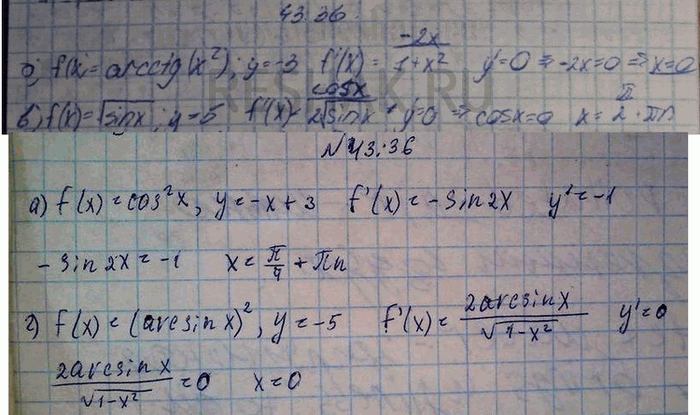 43.36.
б) f(x) = arcctg(x²); y = -3 f'(x) = -2x/1+x² y' = 0 ⇒ -2x = 0 ⇒ x = 0
RESHAK.RU
в) f(x) = √sinx; y = 5 f'(x) = cosx/2√sinx; y' = 0 ⇒ cosx = 0 x = π/2 + πn
№43.36
а) f(x) = cos²x, y = -x + 3 f'(x) = -sin2x y' = -1
-sin2x = -1 x = π/4 + πn
г) f(x) = (arcsin x)², y = -5 f'(x) = 2arcsin x/√1-x² y' = 0
2arcsin x/√1-x² = 0 x = 0